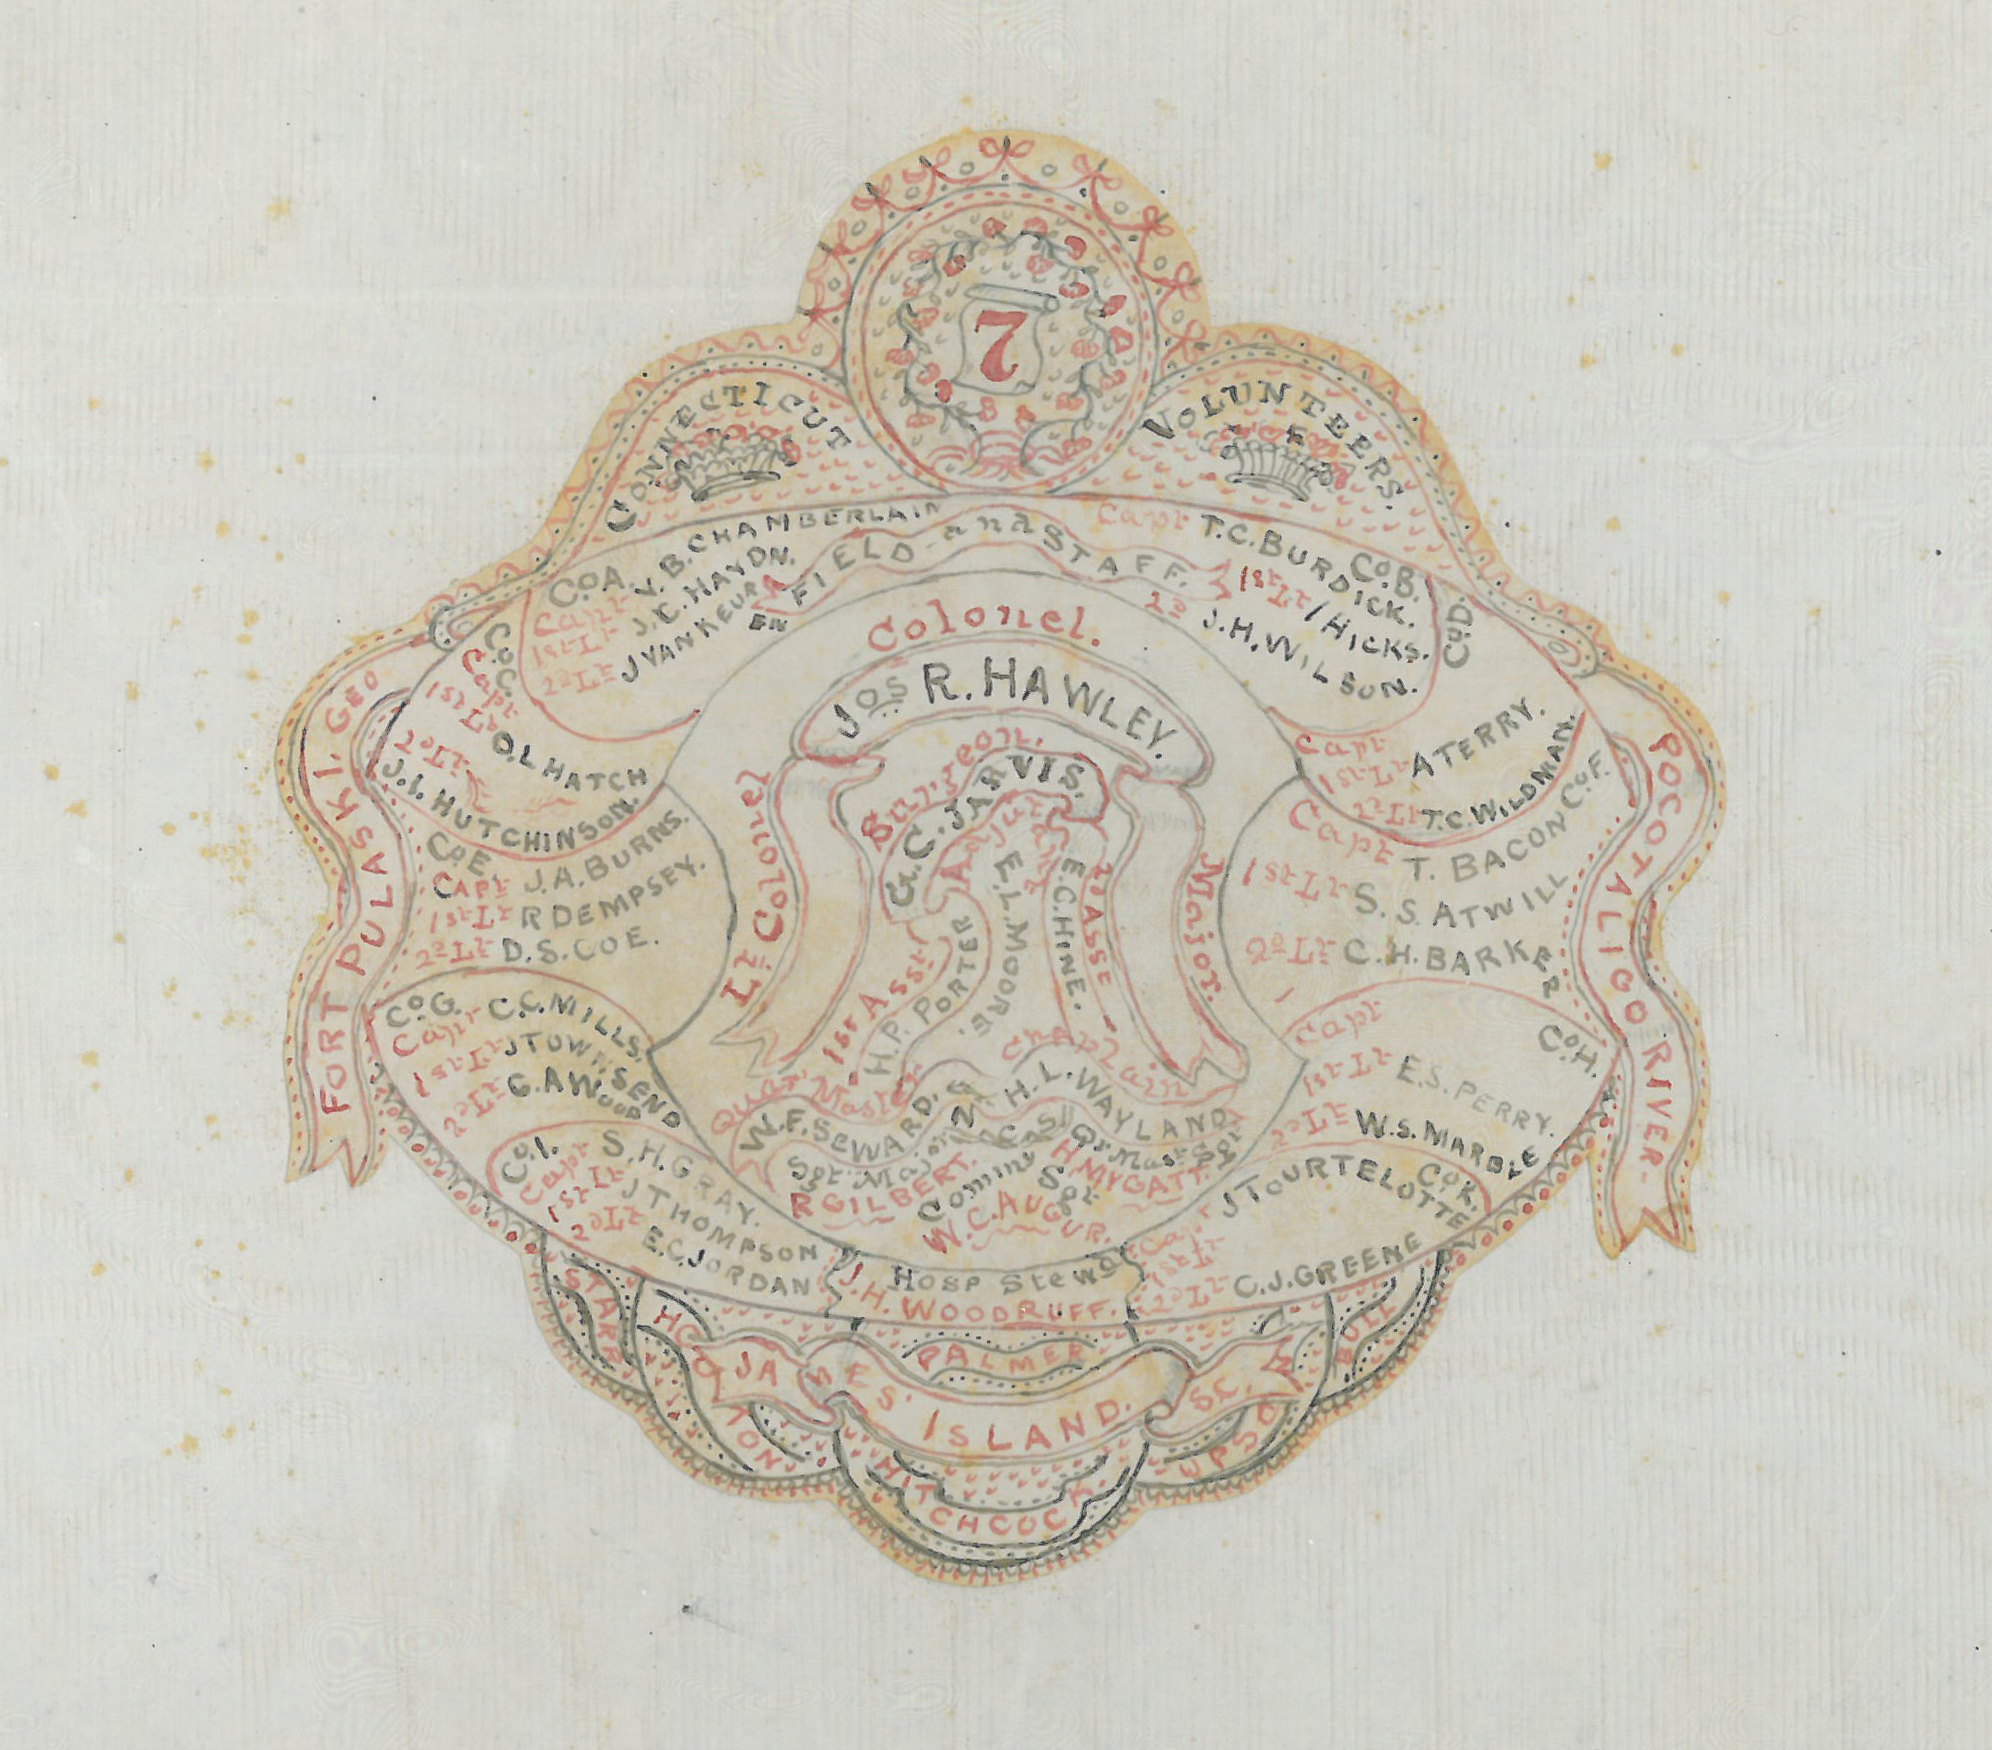 7
CONNECTICUT
VOLUNTEERS.
FIELD and STAFF.
Co A.
Capt V. B. CHAMBERLAIN
1st Lt J. C. HAYDN.
2d Lt J VAN KEUREN
Co. B.
Capt T. C. BURDICK.
1st Lt / HICKS.
2d J. H. WILSON.
Co C.
Capt
1st Lt O. L HATCH
2d Lt J. I. HUTCHINSON.
Co D.
Capt
1st Lt A TERRY.
2d Lt T. C. WILDMAN.
Co E.
CAPt J. A. BURNS.
1st Lt R DEMPSEY.
2d Lt D. S. COE.
Co F.
Capt T. BACON
1st Lt S. S. ATWILL
2d Lt C. H. BARKER
Co G.
Capt C. C. MILLS.
1st Lt J TOWNSEND
2d Lt G. A WOOD
Co. H.
Capt
1st Lt E. S. PERRY.
2d Lt W. S. MARBLE
Co. I.
Capt S. H. GRAY.
1st Lt J THOMPSON
2d Lt E. C. JORDAN
Co K.
Capt J TOURTELOTTE
1st Lt
2d Lt C. J. GREENE
Colonel.
Jos R. HAWLEY.
Lt Colonel
Major.
Surgeon.
G. C. JARVIS.
Adjut
E. L. MOORE.
1st Asst
H. P. PORTER
2d ASSt
E. C. HINE.
Chaplain
H. L. WAYLAND
Quar. Master
W. F. SEWARD.
Non Com
Sgt Major
R GILBERT.
Qr Mast Sgt
H. MYGATT
Commy Sgt
W. C. AUGUR.
Hosp Stewd
J. H. WOODRUFF.
FORT PULASKI. GEO
POCOTALIGO RIVER.
JAMES' ISLAND. SC.
STARR
PALMER
HITCHCOCK
UPSON